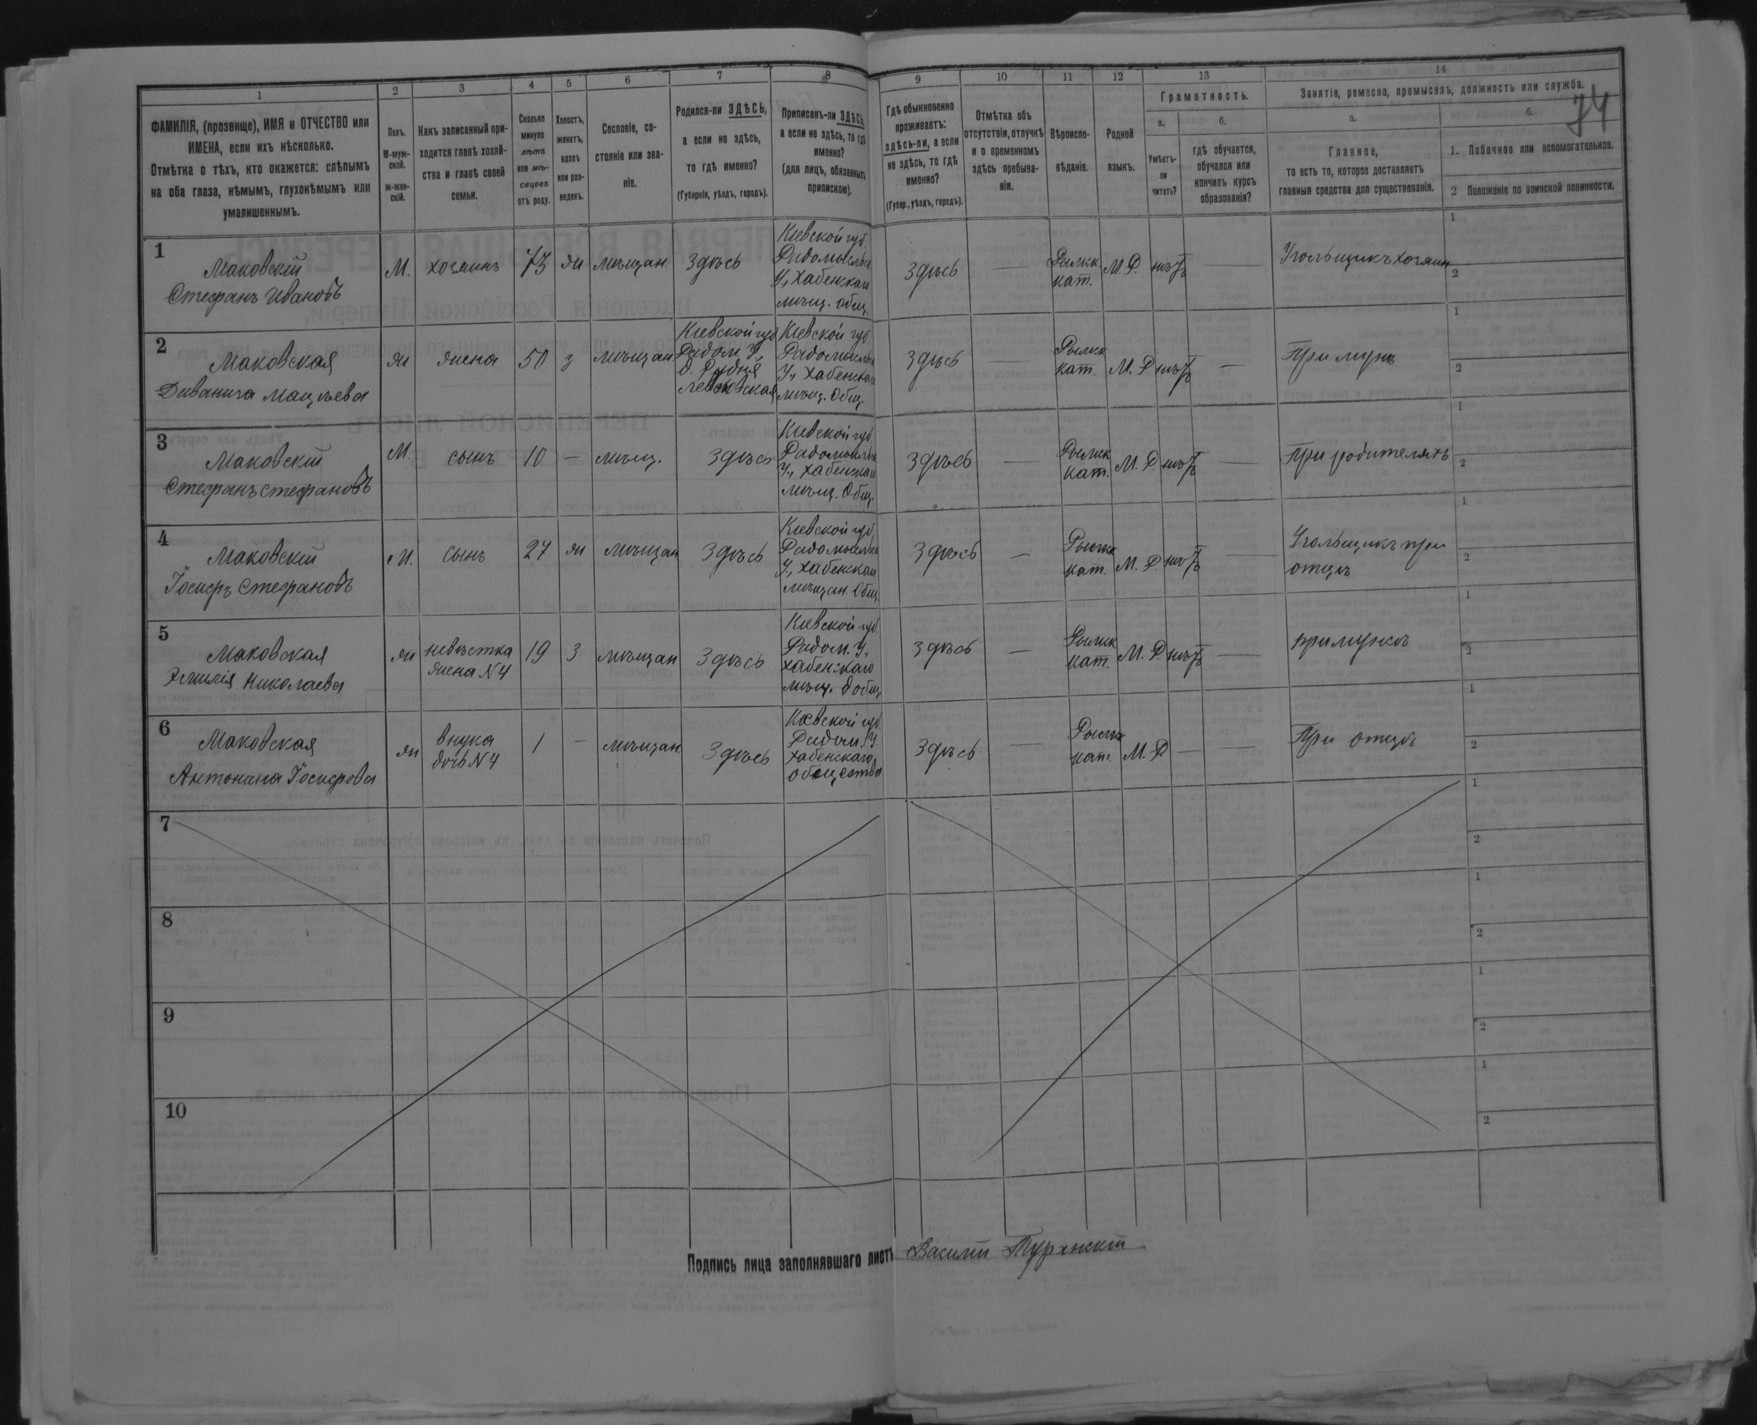 74
1 2 3 4 5 6 7 8 9 10 11 12 13 14
ФАМИЛІЯ, (прозвище), ИМЯ и ОТЧЕСТВО или
ИМЕНА, если ихъ нѣсколько.
Отмѣтка о тѣхъ, кто окажется: слѣпымъ
на оба глаза, нѣмымъ, глухонѣмымъ или
умалишеннымъ.
Полъ.
М-муж-
ской.
ж-жен-
скій.
Какъ записанный при-
ходится главѣ хозяй-
ства и главѣ своей
семьи.
Сколько
минуло
лѣтъ
или мѣ-
сяцевъ
отъ роду.
Холостъ,
женатъ,
вдовъ
или раз-
веденъ.
Сословіе, со-
стояніе или зва-
ніе.
Родился-ли ЗДѢСЬ,
а если не здѣсь,
то гдѣ именно?
(Губернія, уѣздъ, городъ).
Приписанъ-ли ЗДѢСЬ,
а если не здѣсь, то гдѣ
именно?
(для лицъ, обязанныхъ
припискою).
Гдѣ обыкновенно
проживаетъ:
здѣсь-ли, а если
не здѣсь, то гдѣ
именно?
(Губер., уѣздъ, городъ).
Отмѣтка объ
отсутствіи, отлучкѣ
и о временномъ
здѣсь пребыва-
ніи.
Вѣроиспо-
вѣданіе.
Родной
языкъ.
Грамотность.
а.
Умѣетъ-
ли
читать?
б.
гдѣ обучается,
обучался или
кончилъ курсъ
образованія?
Занятіе, ремесло, промыселъ, должность или служба.
а.
Главное,
то есть то, которое доставляетъ
главныя средства для существованія.
б.
1. Побочное или вспомогательное.
2 Положеніе по воинской повинности.
1
Маковскій
Стефанъ Ивановъ
М. хозяинъ 73 ж мѣщан. Здѣсь
Кіевской губ.
Радомысльск.
У., Хабенскаго
мѣщ. общ.
Здѣсь —
Римск.
кат.
М.Р. нѣтъ —
Угольщикъ хозяинъ
1
2
2
Маковская
Мацѣева
ж жена 50 з мѣщан
Кіевской губ.
Радом. У.,
Рудня
Кіевской губ.
Радомысльск
У., Хабенскаго
мѣщ. Общ.
Здѣсь
Римск
кат.
М. Р нѣтъ —
При мужѣ
1
2
3
Маковскій
Стефанъ Стефановъ
М. сынъ 10 — мѣщ. Здѣсь
Кіевской губ
Радомысльск
У., Хабенскаго
мѣщ. Общ.
Здѣсь —
Римск
кат.
М. Р нѣтъ —
При родителяхъ
1
2
4
Маковскій
Іосифъ Стефановъ
М. сынъ 27 ж мѣщан Здѣсь
Кіевской губ.
Радомысльск
У., Хабенскаго
мѣщан. Общ.
Здѣсь —
Римск
кат.
М. Р нѣтъ —
Угольщикъ при
отцѣ
1
2
5
Маковская
Эмилія Николаева
ж невѣстка
жена N 4
19 з мѣщан Здѣсь
Кіевской губ
Радом. У.,
Хабенскаго
мѣщ. общ.
Здѣсь —
Римск
кат.
М. Р нѣтъ —
при мужѣ
1
2
6
Маковская
Антонина Іосифова
ж внука
дочь N 4
1 — мѣщан Здѣсь
Кіевской губ.
Радом. У.
Хабенскаго
общества
Здѣсь —
Римск
кат.
М. Р — —
При отцѣ
1
2
7
1
2
8
1
2
9
1
2
10
1
2
Подпись лица заполнявшаго листъ Василій